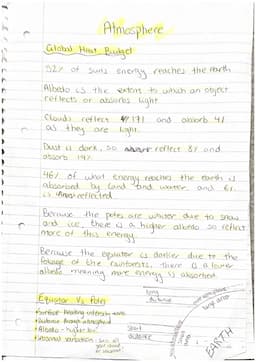 Atmosphere
Global Heat Budget
52% of suns energy reaches the earth
Albedo is the extent to which an object
reflects or absorbs light
Clouds reflect 17% and absorb 4%
as they are light.
Dust is dark, so reflect 8% and
absorb 19%
46% of what energy reaches the earth is
absorbed by land and water and 6%
is reflected
Because the poles are whiter due to snow
and ice, there is a higher albedo so reflect
more of this energy
Because the equator is darker due to the
foliage of the rainforests, there is a lower
albedo meaning more energy is absorbed.
Equator Vs Poles
long
distance
Surface heating
Distance through atmosphere
Albedo - higher
Seasonal variation
short
distance
large area
small area
EARTH